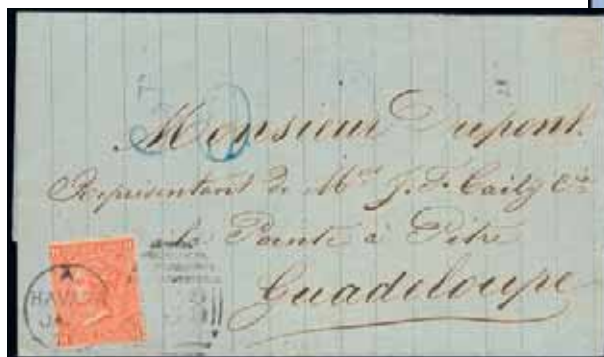 30
Monsieur Dupont
Représentant de Mrs J. F. Cail & Cie
à la Pointe à Pitre
Guadeloupe
A
HAVANA
JA